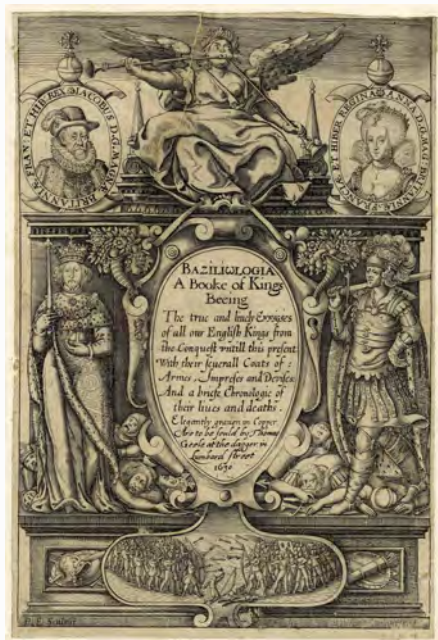 IACOBUS D.G. MAGNÆ BRITANNIÆ FRAN ET HIB REX
ANNA D.G. MAG BRITANNIÆ FRANCIÆ ET HIBER REGINA
BAZILIωLOGIA
A Booke of Kings
Beeing
The true and liuely Effigies
of all our English Kings from
the Conquest vntill this present
With their seuerall Coats of:
Armes, Impreses and Devises
And a briefe Chronologie of
their liues and deaths.
Elegantly grauen in Copper.
Are to be sould by Thomas
Geele at the dagger in
Lumbard street
1630
R. E. Sculpsit